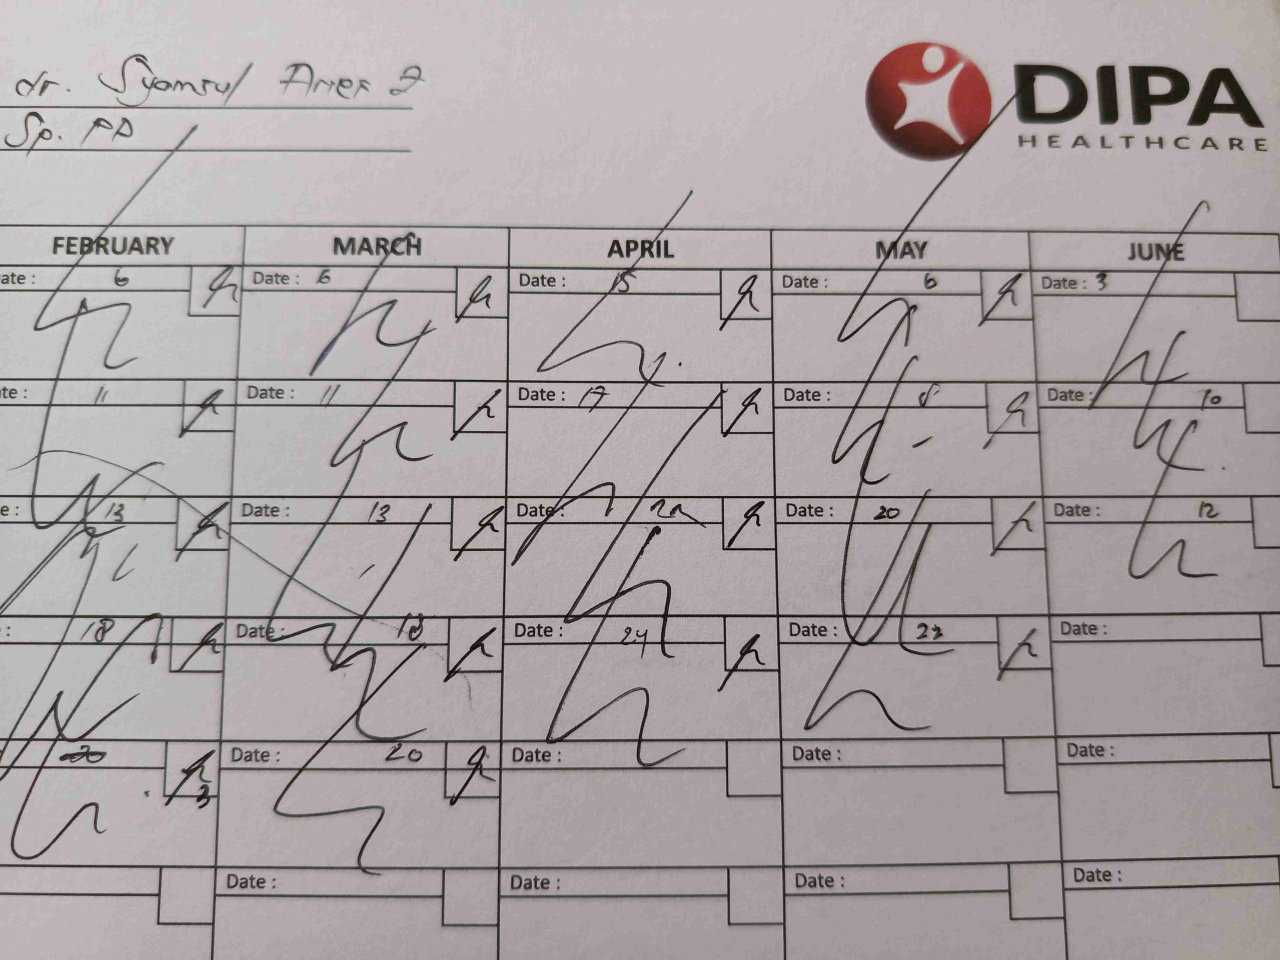 dr. Syamsul
Sp. PD
DIPA
HEALTHCARE
FEBRUARY MARCH APRIL MAY JUNE
ate : 6 Date : 6 Date : 15 Date : 6 Date : 3
te : 11 Date : 11 Date : 17 Date : 8 Date : 10
e : 13 Date : 13 Date : 22 Date : 20 Date : 12
: 18 Date : 18 Date : 24 Date : 22 Date :
20 Date : 20 Date : Date : Date :
3
Date : Date : Date : Date :